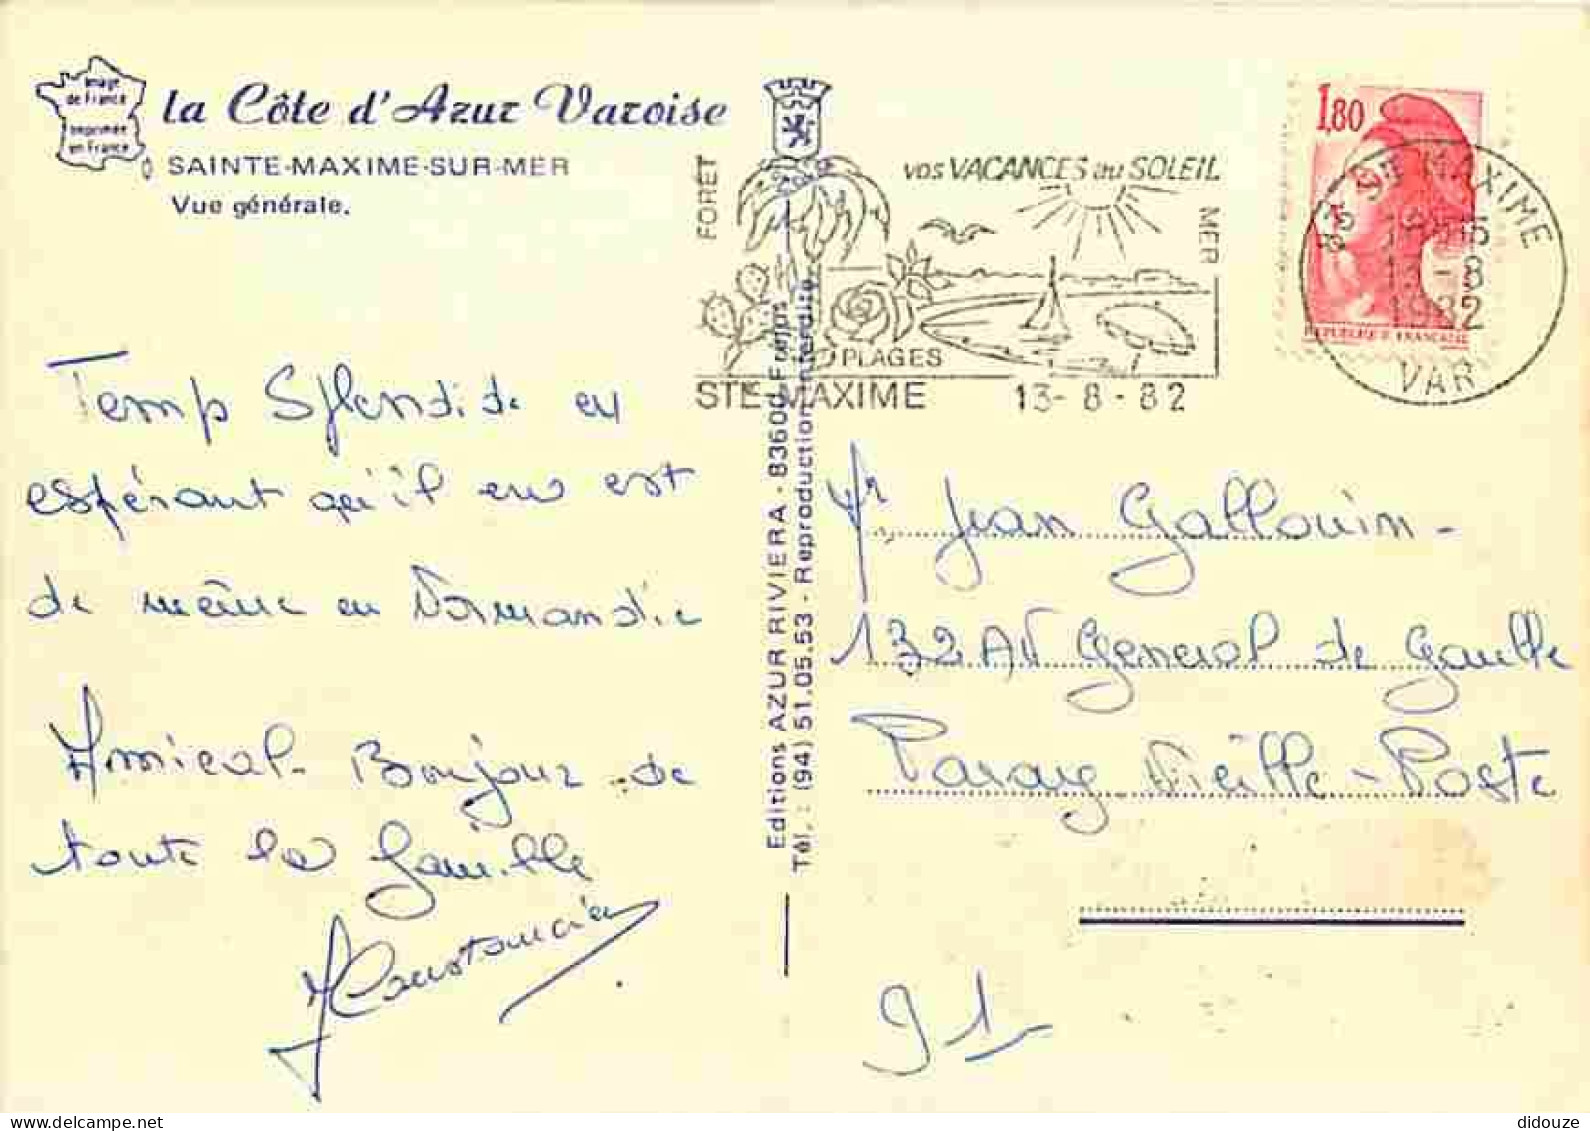 Image
de France
Imprimée
en France
la Côte d'Azur Varoise
SAINTE-MAXIME-SUR-MER
Vue générale.
Temp Splendide en
espérant qu'il en est
de même en Normandie
Amical Bonjour de
toute la famille
Editions AZUR RIVIERA - 83600 Fréjus
Tél. : (94) 51.05.53 - Reproduction interdite
FORÊT
vos VACANCES au SOLEIL
MER
PLAGES
STE MAXIME 13-8-82
1,80
REPUBLIQUE FRANCAISE
83 STE MAXIME
13-8
1982
VAR
Mr Jean Gallouin-
132 AV General de Gaulle
Paray Vieille-Poste
91
didouze